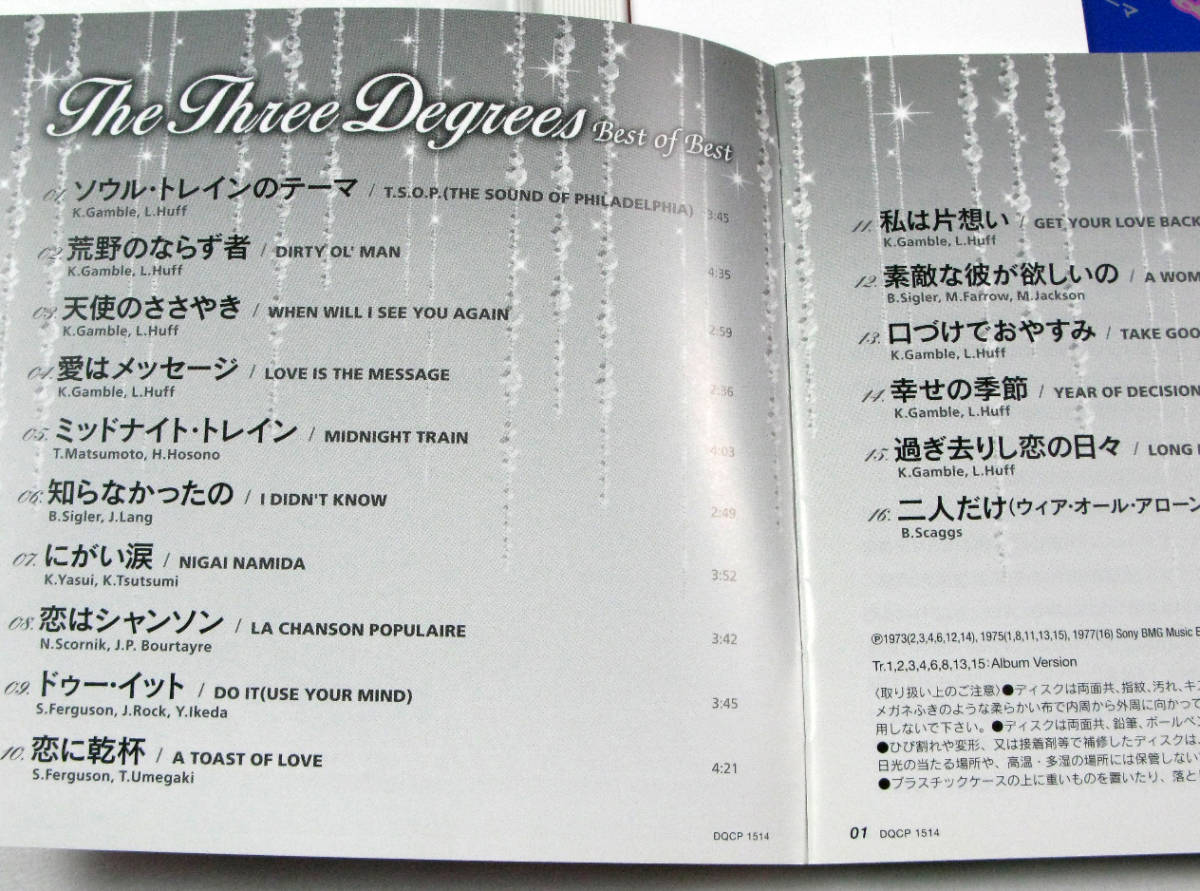 The Three Degrees Best of Best
01. ソウル・トレインのテーマ / T.S.O.P.(THE SOUND OF PHILADELPHIA) 3:45
K.Gamble, L.Huff
02. 荒野のならず者 / DIRTY OL' MAN 4:35
K.Gamble, L.Huff
03. 天使のささやき / WHEN WILL I SEE YOU AGAIN 2:59
K.Gamble, L.Huff
04. 愛はメッセージ / LOVE IS THE MESSAGE 2:36
K.Gamble, L.Huff
05. ミッドナイト・トレイン / MIDNIGHT TRAIN 4:03
T.Matsumoto, H.Hosono
06. 知らなかったの / I DIDN'T KNOW 2:49
B.Sigler, J.Lang
07. にがい涙 / NIGAI NAMIDA 3:52
K.Yasui, K.Tsutsumi
08. 恋はシャンソン / LA CHANSON POPULAIRE 3:42
N.Scornik, J.P. Bourtayre
09. ドゥー・イット / DO IT(USE YOUR MIND) 3:45
S.Ferguson, J.Rock, Y.Ikeda
10. 恋に乾杯 / A TOAST OF LOVE 4:21
S.Ferguson, T.Umegaki
DQCP 1514
11. 私は片想い / GET YOUR LOVE BACK
K.Gamble, L.Huff
12. 素敵な彼が欲しいの / A WOM
B.Sigler, M.Farrow, M.Jackson
13. 口づけでおやすみ / TAKE GOO
K.Gamble, L.Huff
14. 幸せの季節 / YEAR OF DECISION
K.Gamble, L.Huff
15. 過ぎ去りし恋の日々 / LONG
K.Gamble, L.Huff
16. 二人だけ(ウィア・オール・アローン
B.Scaggs
Ⓟ1973(2,3,4,6,12,14), 1975(1,8,11,13,15), 1977(16) Sony BMG Music E
Tr.1,2,3,4,6,8,13,15:Album Version
〈取り扱い上のご注意〉●ディスクは両面共、指紋、汚れ、キズ
メガネふきのような柔らかい布で内周から外周に向かって
用しないで下さい。●ディスクは両面共、鉛筆、ボールペン
●ひび割れや変形、又は接着剤等で補修したディスクは、
日光の当たる場所や、高温・多湿の場所には保管しない
●プラスチックケースの上に重いものを置いたり、落と
01 DQCP 1514